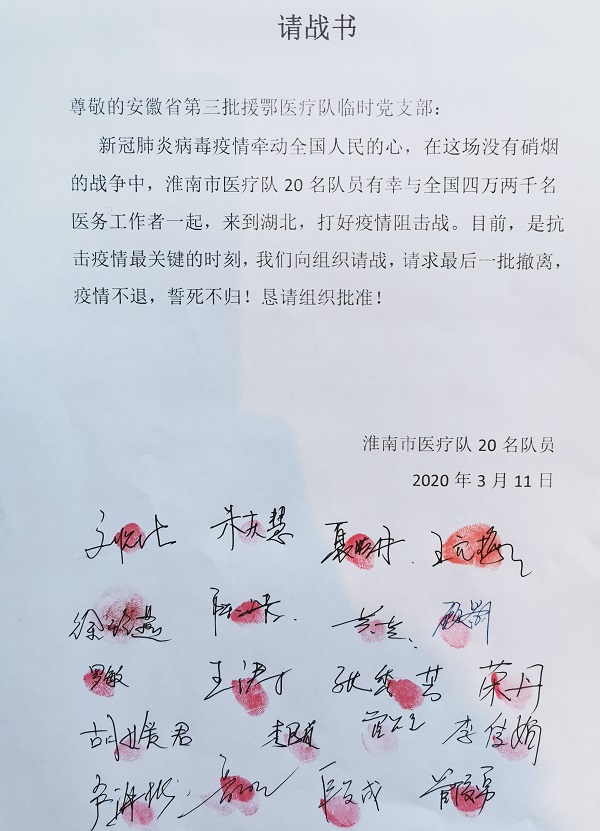 请战书
尊敬的安徽省第三批援鄂医疗队临时党支部：
新冠肺炎病毒疫情牵动全国人民的心，在这场没有硝烟
的战争中，淮南市医疗队 20 名队员有幸与全国四万两千名
医务工作者一起，来到湖北，打好疫情阻击战。目前，是抗
击疫情最关键的时刻，我们向组织请战，请求最后一批撤离，
疫情不退，誓死不归！恳请组织批准！
淮南市医疗队 20 名队员
2020 年 3 月 11 日
朱庆慧
顾影
罗敏 荣丹
胡媛君 李佳娟